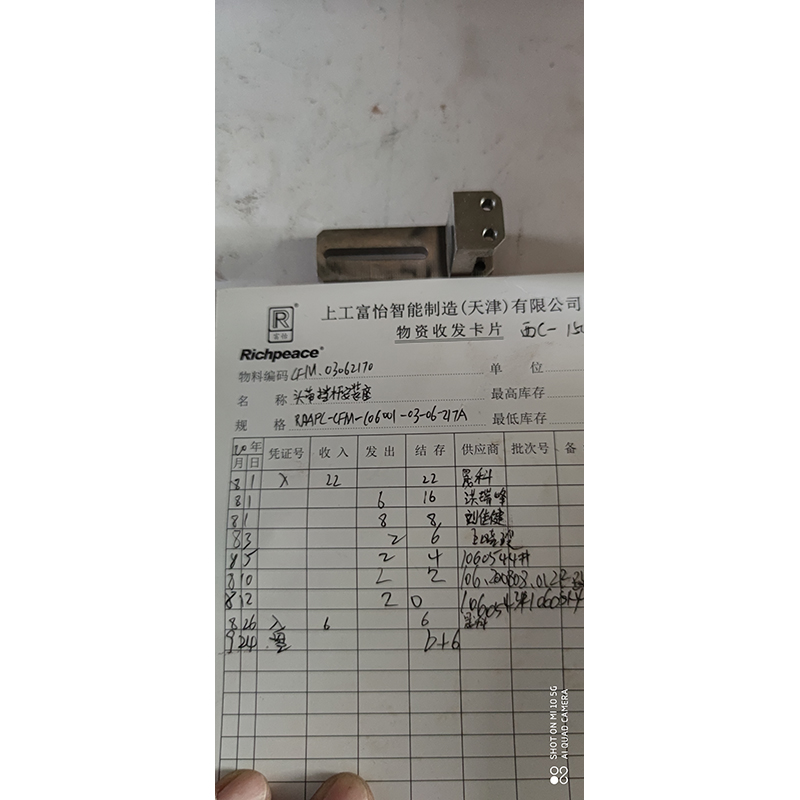 上工富怡智能制造(天津)有限公司
R
富怡
物资收发卡片 西C-15
Richpeace
物料编码 CFM.03062170 单位
名称 头带挡杆安装座 最高库存
规格 RAAPL-CFM-106001-03-06-217A 最低库存
20年 凭证号 收入 发出 结存 供应商 批次号 备
月 日
8 1 入 22 22 昆科
8 1 6 16 洪瑞峰
8 1 8 8 刘佳健
8 3 2 6
8 5 2 4 1060544#
8 10 2 2 106.200803.0122
8 12 2 0
8 26 入 6 6
9 24 盘 6+6
SHOT ON MI 10 5G
AI QUAD CAMERA